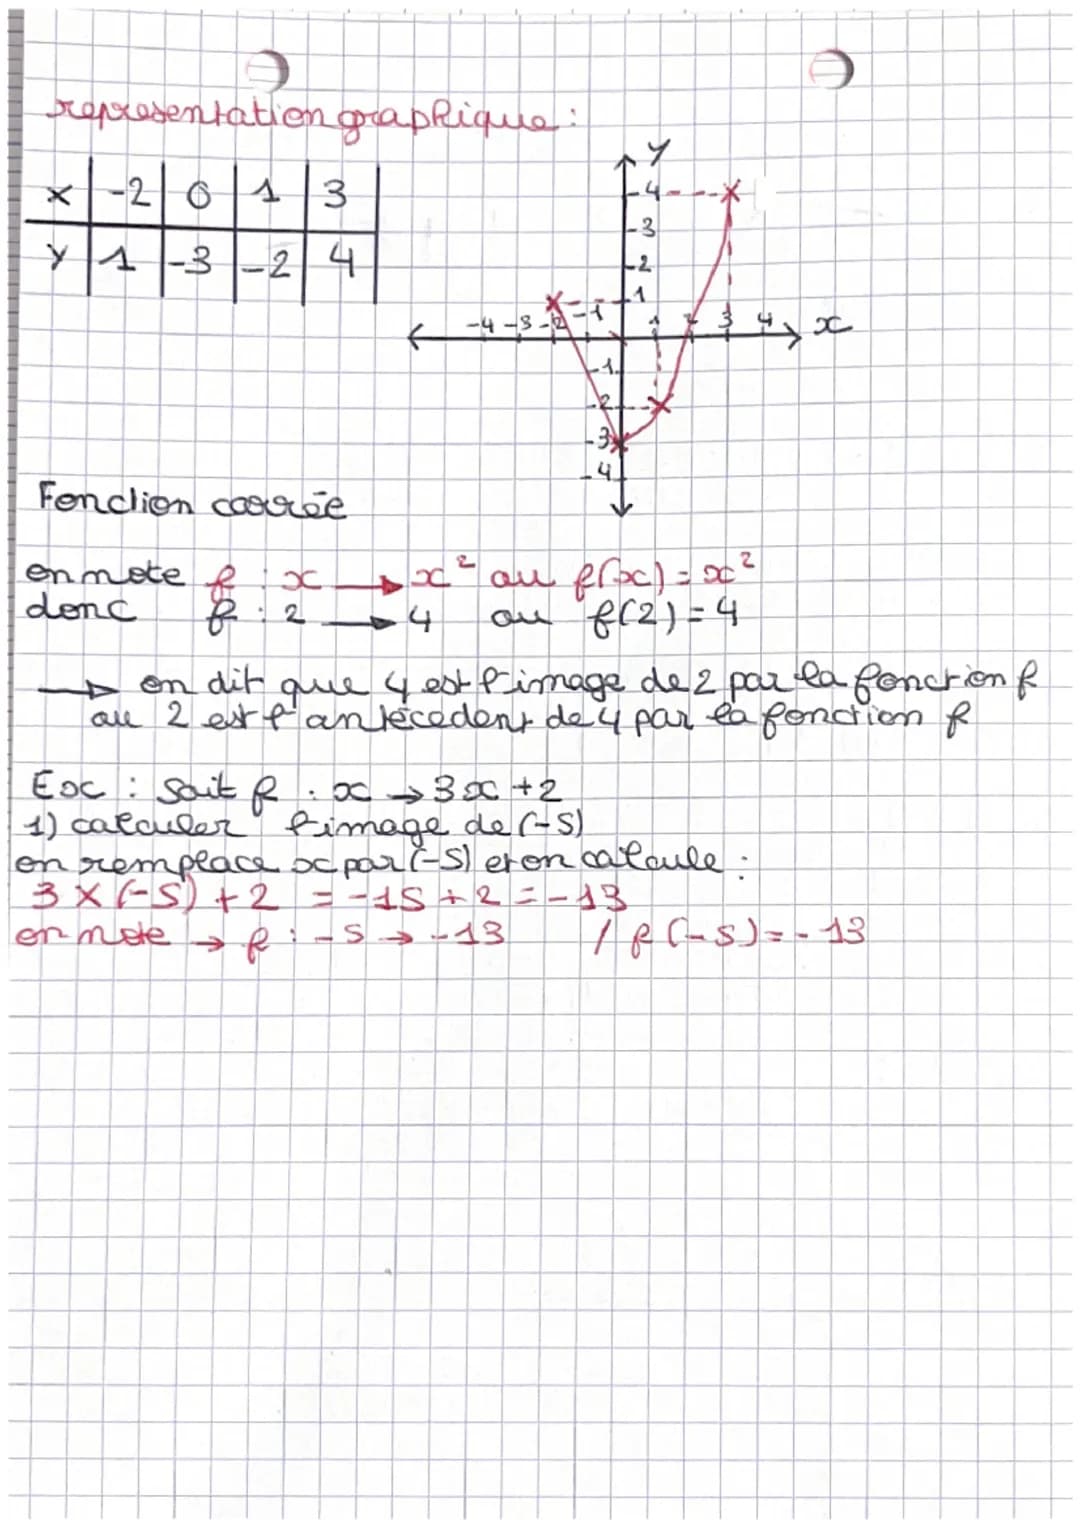 representation graphique :
x | -2 | 0 | 1 | 3
y | 1 | -3 | -2 | 4
y
4
3
2
1
-4 -3 -2 -1 1 2 3 4 x
-1
-2
-3
-4
Fonction carrée
on note f : x → x² ou f(x) = x²
donc f : 2 → 4 ou f(2) = 4
→ on dit que 4 est l'image de 2 par la fonction f
ou 2 est l'antécedent de 4 par la fonction f
Ex : Soit f : x → 3x + 2
1) calculer l'image de (-5)
on remplace x par (-5) et on calcule :
3 × (-5) + 2 = -15 + 2 = -13
on note → f : -5 → -13 / f(-5) = -13